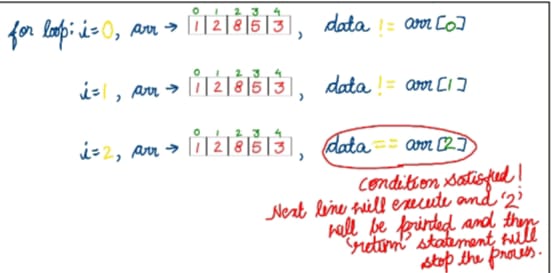 0 1 2 3 4
for loop: i=0, arr → 1 2 8 5 3, data != arr[0]
0 1 2 3 4
i=1, arr → 1 2 8 5 3, data != arr[1]
0 1 2 3 4
i=2, arr → 1 2 8 5 3, data == arr[2]
condition satisfied!
Next line will execute and '2'
will be printed and then
'return' statement will
stop the process.